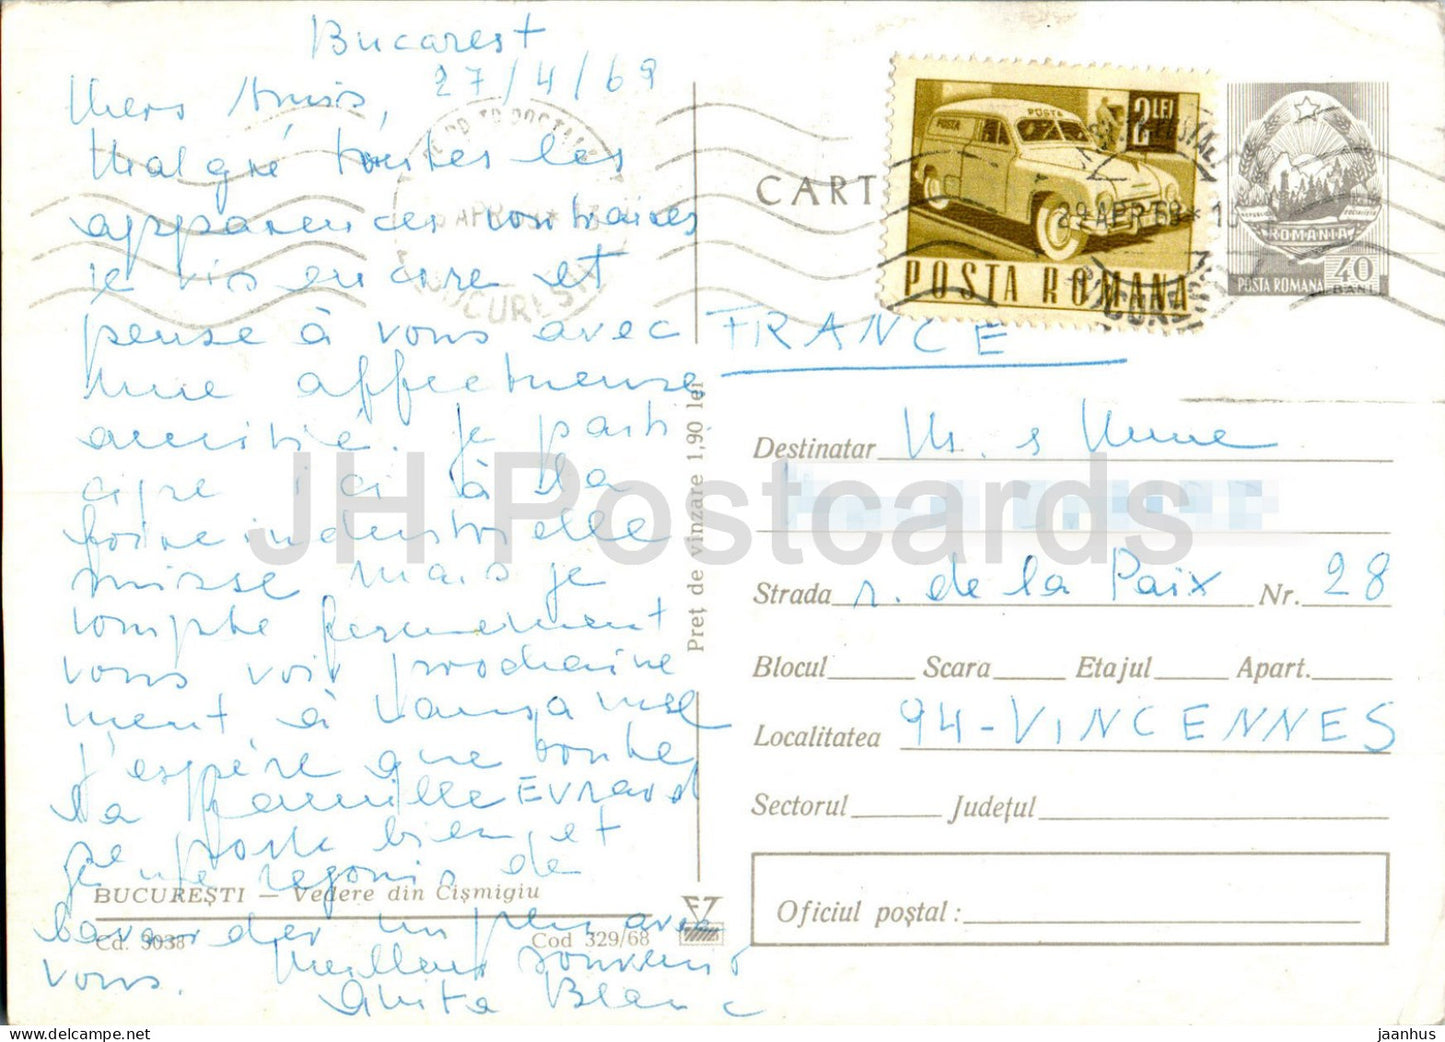 Bucarest
27/4/69
Chers Amis,
Malgré toutes les
apparences contraires
je vis encore et
pense à vous avec
une affectueuse
amitié. Je parti
cipe ici à la
foire industrielle
suisse mais je
compte fermement
vous voir prochaine
ment à Lausanne
J'espère que toute
la famille Evrard
se porte bien et
je me réjouis de
bavarder un peu avec
vous. Meilleurs souvenirs
Anita Blanc
BUCUREȘTI — Vedere din Cișmigiu
Cd. 3038
Cod 329/68
Preț de vinzare 1,90 lei
CART
POSTA
POSTA
2 LEI
POSTA ROMANA
29 APR 69
BUCUREȘTI
ROMANIA
POSTA ROMANA
40
BANI
FRANCE
Destinatar
Strada r. de la Paix Nr. 28
Blocul Scara Etajul Apart.
Localitatea 94-VINCENNES
Sectorul Județul
Oficiul poștal:
JH Postcards
jaanhus - delcampe.net